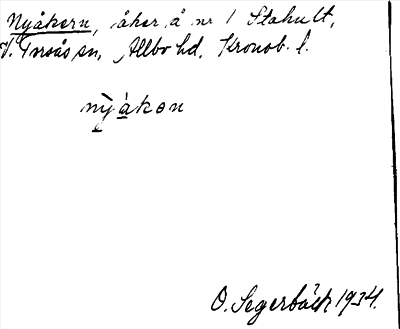 Nyåkern, åker å nr 1 Stahult,
V. Torsås sn, Allbo hd, Kronob. l.
nỳåkɵn
O. Segerbäck 1934.